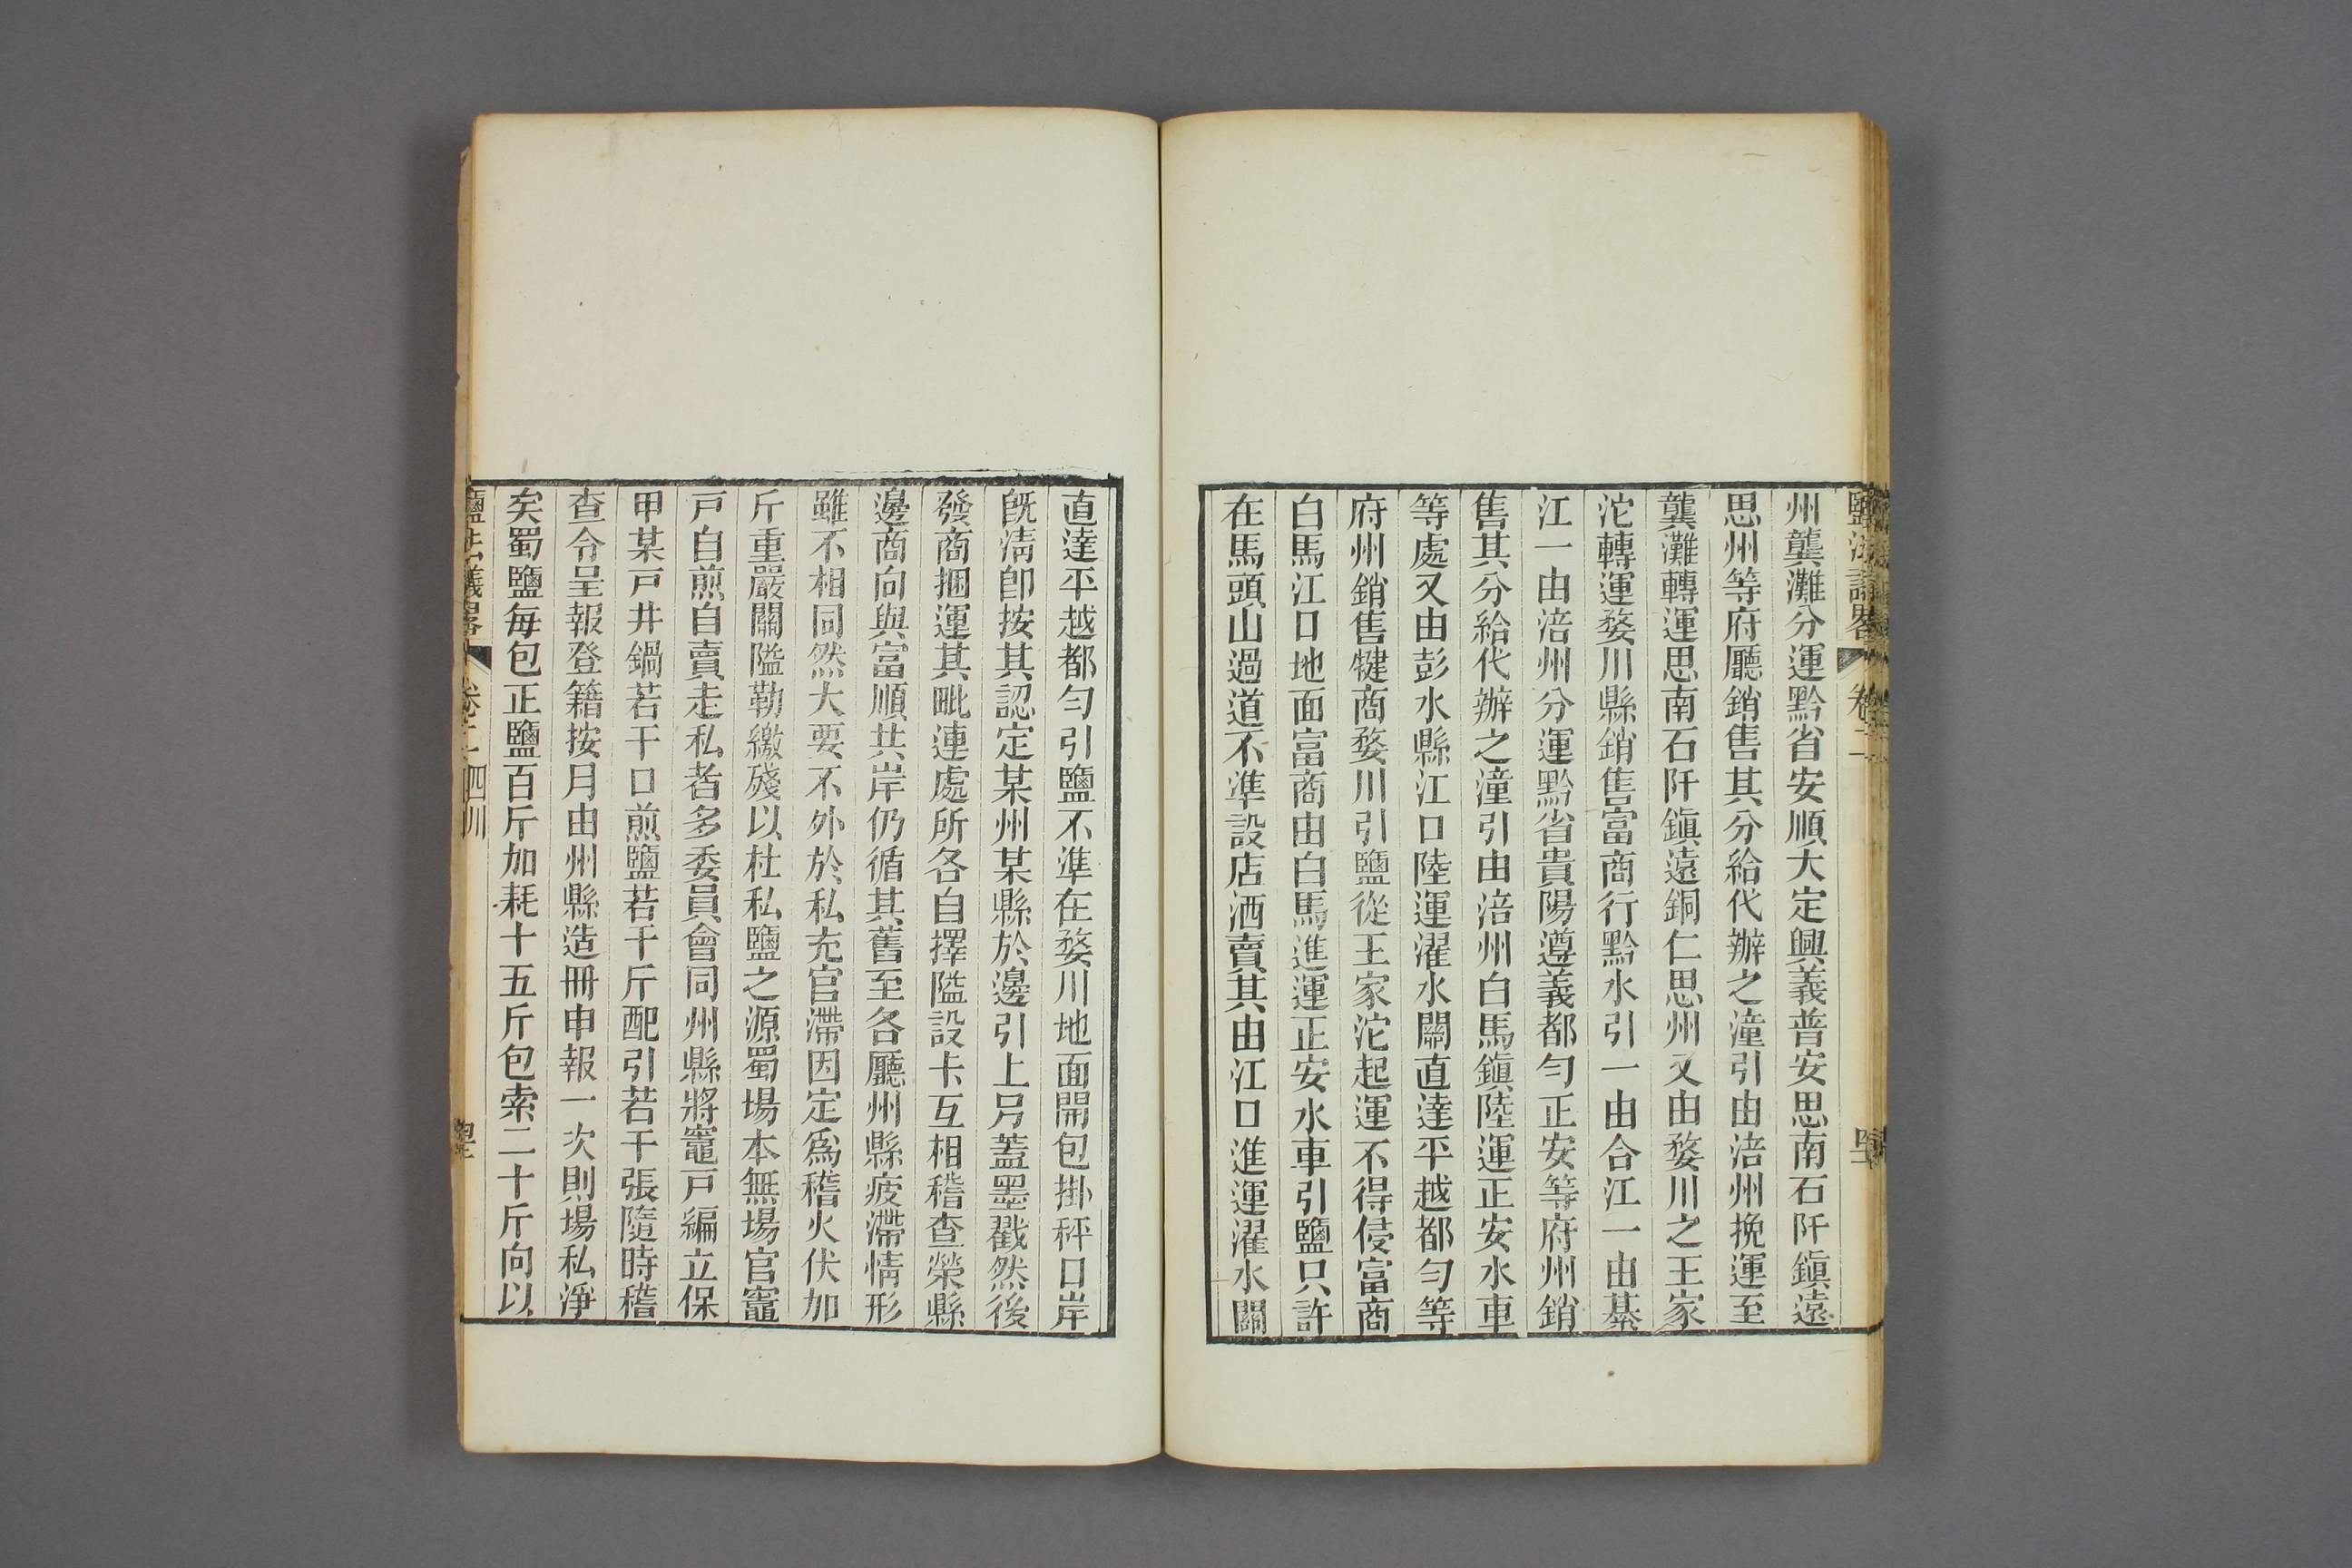 鹽法議畧 卷二
州龔灘分運黔省安順大定興義普安思南石阡鎭遠
思州等府廳銷售其分給代辦之潼引由涪州挽運至
龔灘轉運思南石阡鎭遠銅仁思州又由婺川之王家
沱轉運婺川縣銷售富商行黔水引一由合江一由綦
江一由涪州分運黔省貴陽遵義都勻正安等府州銷
售其分給代辦之潼引由涪州白馬鎭陸運正安水車
等處又由彭水縣江口陸運濯水關直達平越都勻等
府州銷售犍商婺川引鹽從王家沱起運不得侵富商
白馬江口地面富商由白馬進運正安水車引鹽只許
在馬頭山過道不準設店洒賣其由江口進運濯水關
直達平越都勻引鹽不準在婺川地面開包掛秤口岸
旣淸卽按其認定某州某縣於邊引上另蓋墨戳然後
發商捆運其毗連處所各自擇隘設卡互相稽查榮縣
邊商向與富順共岸仍循其舊至各廳州縣疲滯情形
雖不相同然大要不外於私充官滯因定爲稽火伏加
斤重嚴關隘勒繳殘以杜私鹽之源蜀場本無場官竈
戸自煎自賣走私者多委員會同州縣將竈戸編立保
甲某戸井鍋若干口煎鹽若干斤配引若干張隨時稽
查令呈報登籍按月由州縣造冊申報一次則場私淨
矣蜀鹽每包正鹽百斤加耗十五斤包索二十斤向以
鹽法議畧 卷二 四川